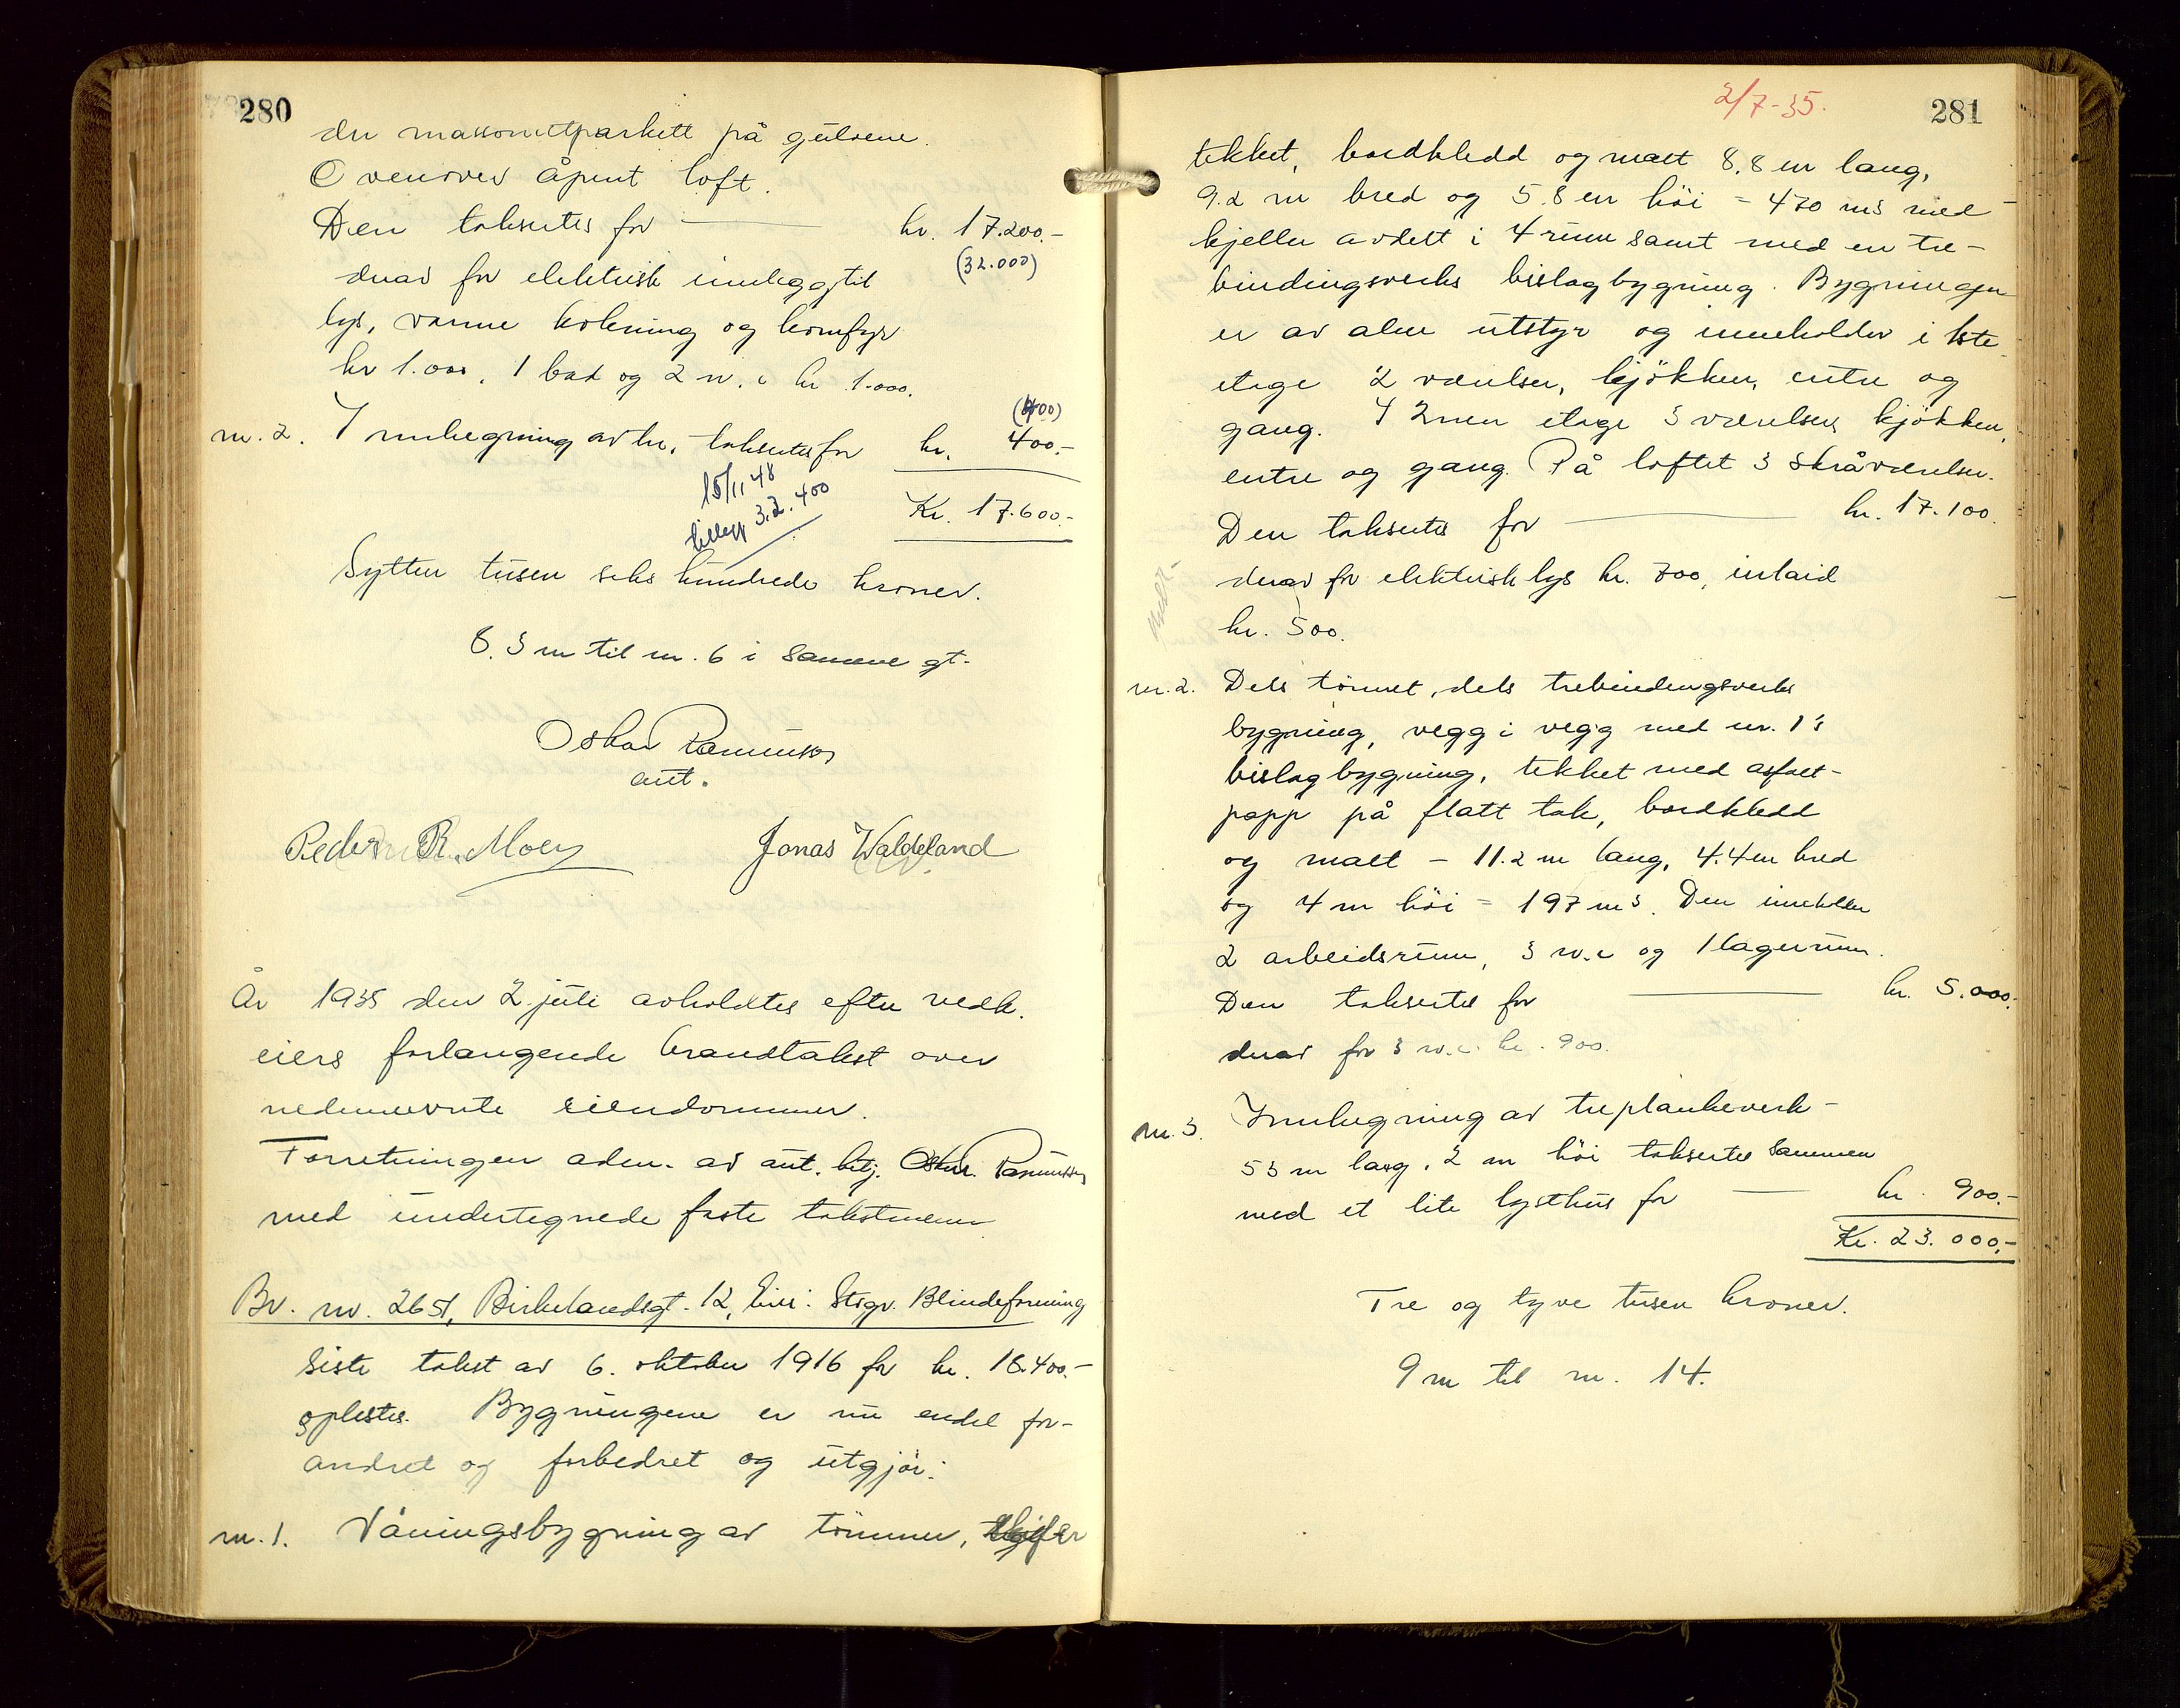 280
du massonittparkett på gulvene.
Ovenover åpent loft.
Den takseres for — kr. 17.200.-
(32.000)
derav for elektrisk innlegg til
lys, varme kokning og komfyr
kr 1.000, 1 bad og 2 w.c kr 1.000.
(400)
nr. 2. Innhegning av tre, takseres for kr. 400.-
15/11 48
tillegg 3.2.400
Kr. 17.600.-
Sytten tusen seks hundrede kroner.
8.3 m til nr. 6 i samme gt.
Oskar Rasmussen
aut.
Peder R. Moen Jonas Waldeland
År 1935 den 2 juli avholdtes efter vedk.
eiers forlangende brandtakst over
nedennevnte eiendommer.
Forretningen adm. av aut. betj. Oskar Rasmussen
med undertegnede faste takstmenn
Br. nr. 2651, Birkelandsgt. 12, Eier: Stgv. Blindeforening
Siste takst av 6. oktober 1916 for kr. 18.400.-
oplestes. Bygningene er nu endel for-
andret og forbedret og utgjør:
nr. 1. Våningsbygning av tømmer, skifer
2/7-35.
281
tekket, bordkledd og malt 8,8 m lang,
9.2 m bred og 5.8 m höi = 470 m3 med
kjeller avdelt i 4 rum samt med en tre-
bindingsverks bislagbygning. Bygningen
er av alm utstyr og inneholder i 1ste
etage 2 værelser, kjökken, entre og
gang. I 2nen etage 3 værelser, kjökken,
entre og gang. På loftet 3 skråværelser.
Den takseres for — kr. 17.100.
derav for elektrisk lys kr. 700, inlaid
kr. 500.
nr. 2. Dels tömret, dels trebindingsverks
bygning, vegg i vegg med nr. 1's
bislagbygning, tekket med asfalt-
papp på flatt tak, bordkledd
og malt - 11.2 m lang, 4.4 m bred
og 4 m höi = 197 m3. Den inneholder
2 arbeidsrum, 3 w.c og 1 lagerrum.
Den takseres for — kr. 5.000.-
derav for 3 w.c. kr. 900.
nr. 3. Innhegning av treplankeverk -
53 m lang, 2 m höi takseres sammen
med et lite lysthus for — kr. 900.-
Kr. 23.000,-
Tre og tyve tusen kroner.
9 m til nr. 14.